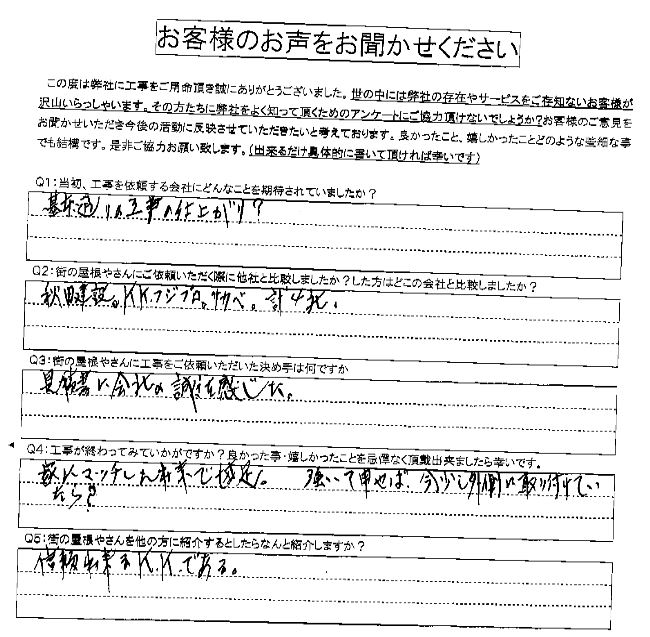 お客様のお声をお聞かせください
この度は弊社に工事をご用命頂き誠にありがとうございました。世の中には弊社の存在やサービスをご存知ないお客様が
沢山いらっしゃいます。その方たちに弊社をよく知って頂くためのアンケートにご協力頂けないでしょうか?お客様のご意見を
お聞かせいただき今後の活動に反映させていただきたいと考えております。良かったこと、嬉しかったことどのような些細な事
でも結構です。是非ご協力お願い致します。(出来るだけ具体的に書いて頂ければ幸いです)
Q1:当初、工事を依頼する会社にどんなことを期待されていましたか?
基本通りの工事の仕上がり?
Q2:街の屋根やさんにご依頼いただく際に他社と比較しましたか?した方はどこの会社と比較しましたか?
秋田建設。K.K.フジプロ。ヤカベ。計4社。
Q3:街の屋根やさんに工事をご依頼いただいた決め手は何ですか
見積書に会社の誠注感じた。
Q4:工事が終わってみていかがですか?良かった事・嬉しかったことを忌憚なく頂戴出来ましたら幸いです。
マッチした出来で満足。 強いて申せば、今少し外側に取り付けてい
たら?
Q5:街の屋根やさんを他の方に紹介するとしたらなんと紹介しますか?
信頼出来るK.K.である。